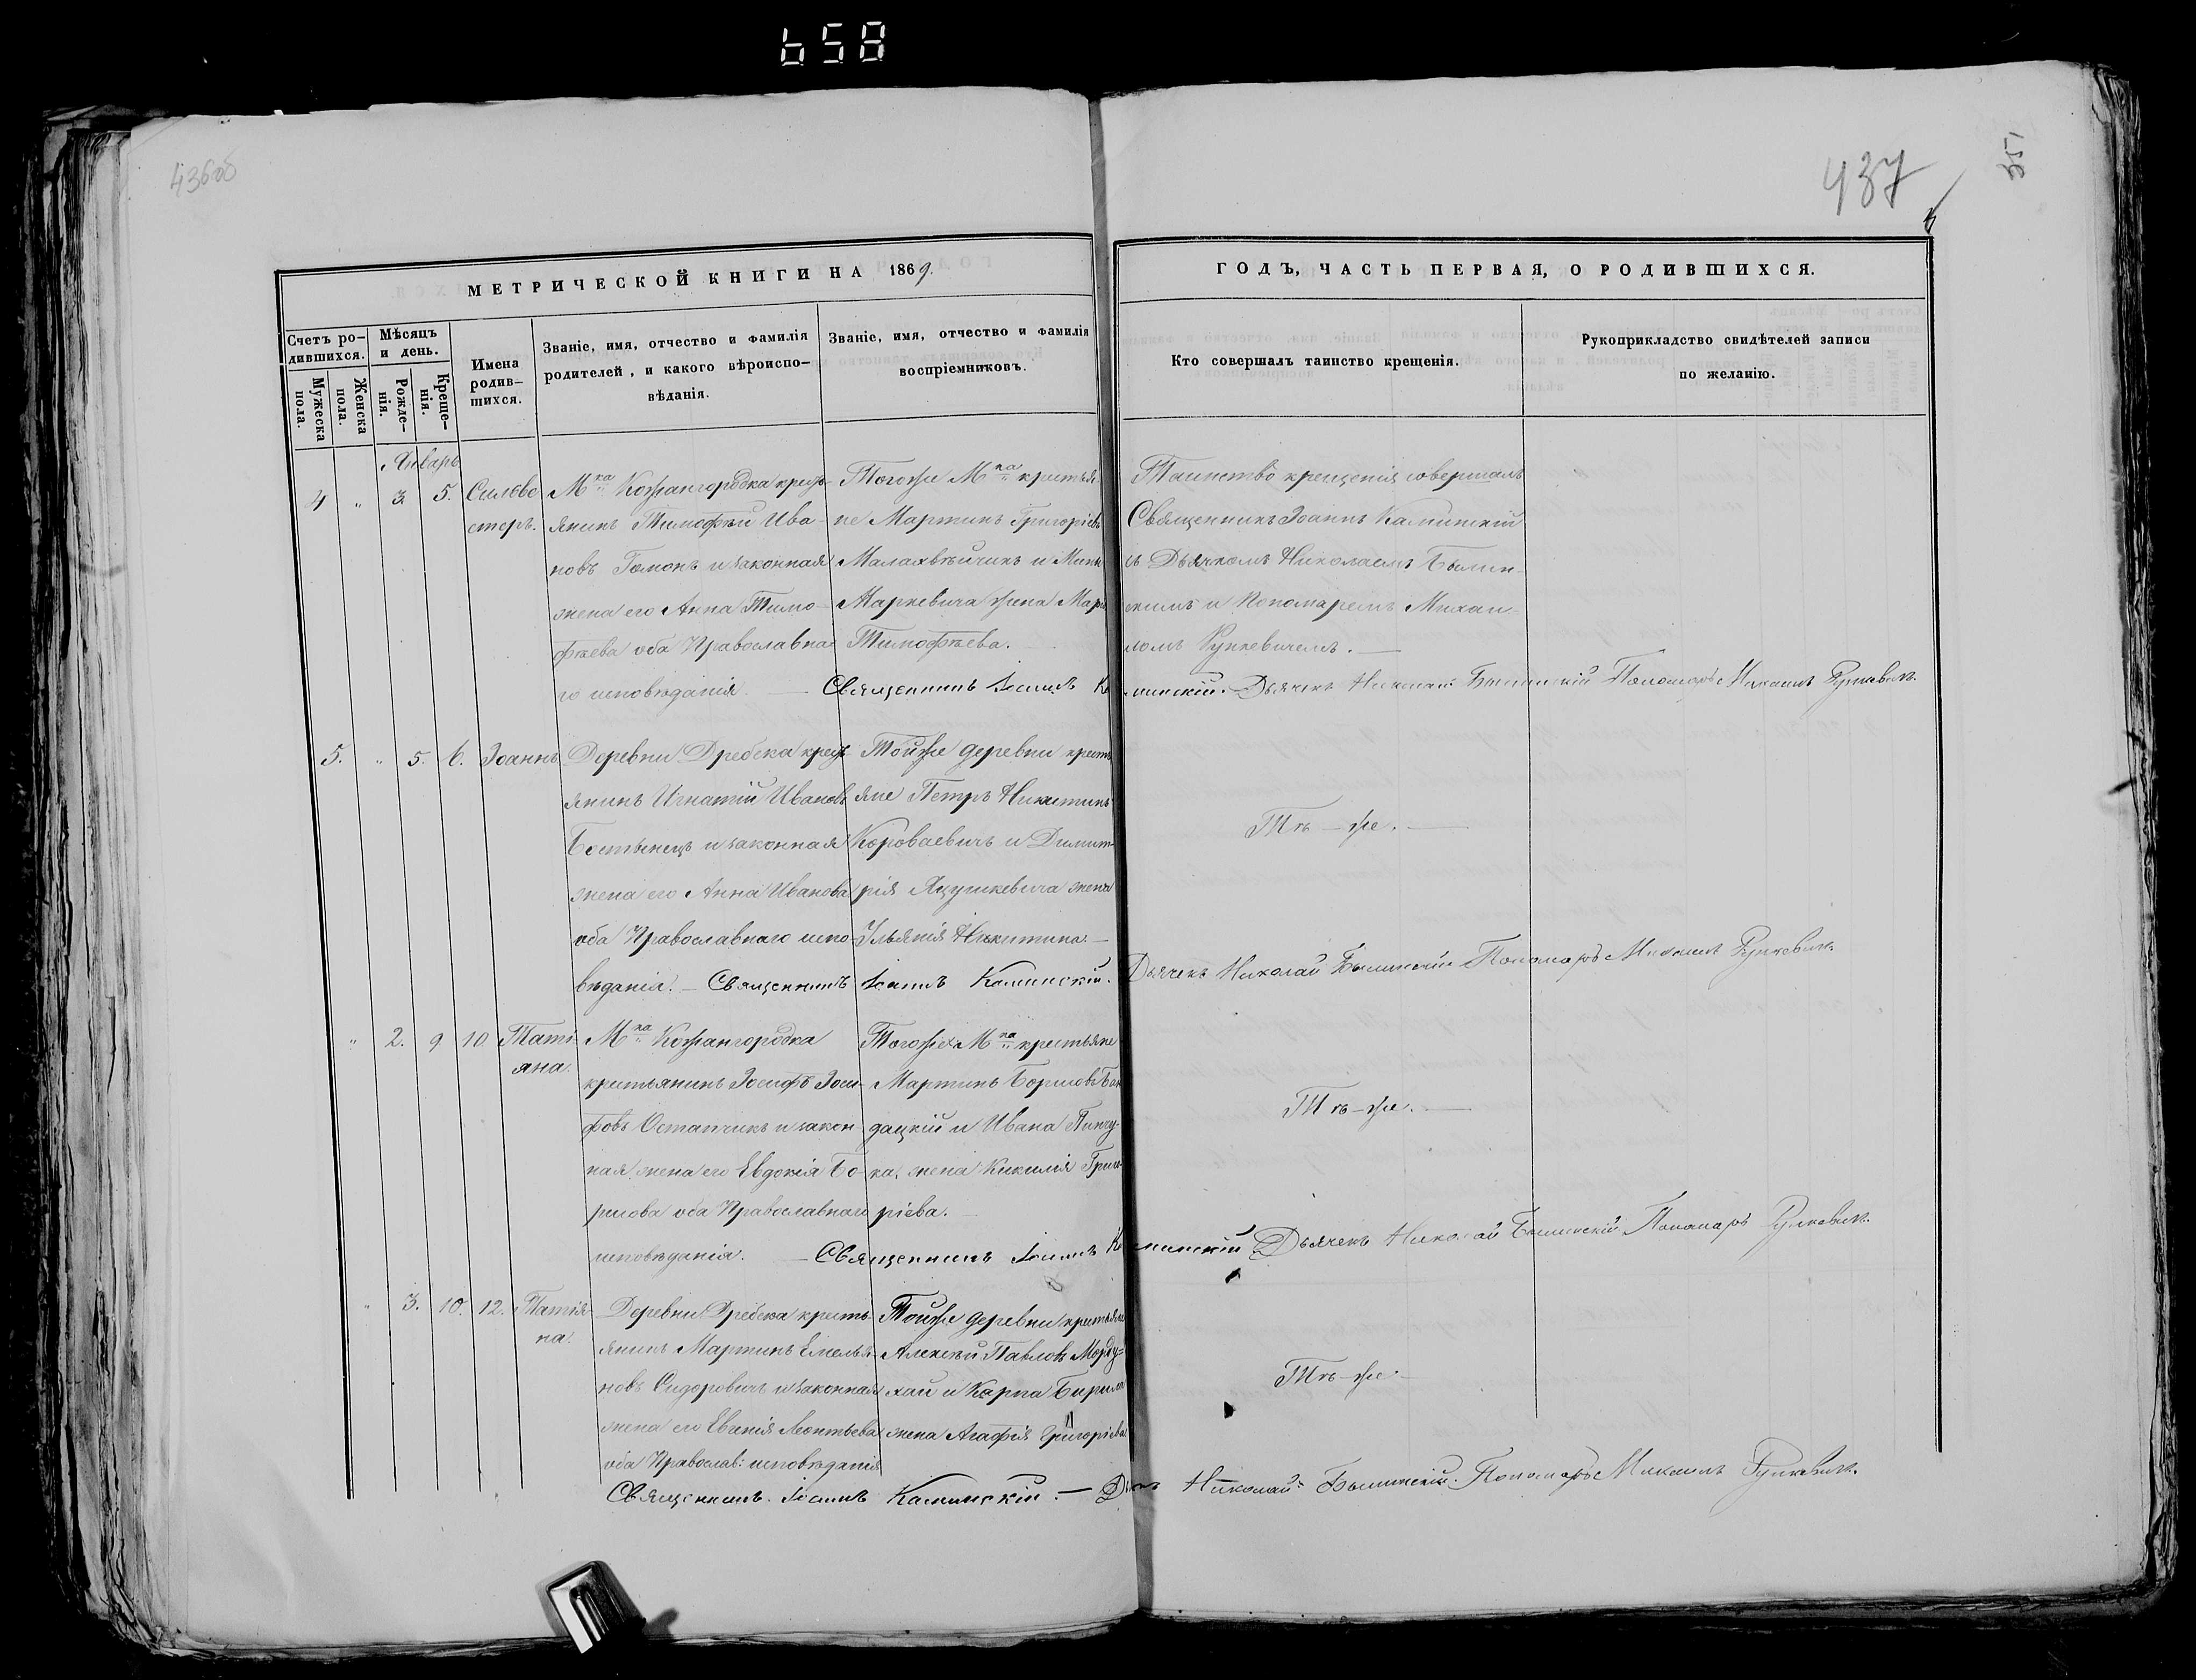 658
436об
437
351
МЕТРИЧЕСКОЙ КНИГИ НА 1869.
ГОДЪ, ЧАСТЬ ПЕРВАЯ, О РОДИВШИХСЯ.
Счетъ ро-
дившихся.
Мужеска
пола.
Женска
пола.
Мѣсяцъ
и день.
Рожде-
нія.
Креще-
нія.
Имена
родив-
шихся.
Званіе, имя, отчество и фамилія
родителей, и какого вѣроиспо-
вѣданія.
Званіе, имя, отчество и фамилія
воспріемниковъ.
Кто совершалъ таинство крещенія.
Рукоприкладство свидѣтелей записи
по желанію.
Январь
4 " 3 5. Сильве
стеръ.
Мка Кожангородка кресть
янинъ Тимофей Ива-
новъ Гомонъ и законная
жена его Анна Тимо-
фѣева оба Православна
го исповѣданія.
Тогоже Мка крестья
не Мартинъ Григоріевъ
и
Маркевича жена
Тимофѣева.
Таинство крещенія совершалъ
Священникъ Іоаннъ Каминскій
съ Дьячкомъ Николаемъ Былин-
скимъ и Пономаремъ Михаи-
ломъ Рункевичемъ.
Священникъ Іоаннъ Каминскій. Дьячекъ Николай Былинскій Пономарь Михаилъ Рункевичъ.
5. " 5. 6. Іоаннъ
Деревни Дребска крест
янинъ Игнатій Ивановъ
Бостынецъ и законная
жена его Анна Иванова
оба Православнаго испо-
вѣданія.
Тойже деревни кресть
яне Петръ Никитинъ
Короваевичъ и Димит-
рія Яцушкевича жена
Ульянія Никитина.
Тѣ-же.
Священникъ Іоаннъ Каминскій. Дьячекъ Николай Былинскій Пономарь Михаилъ Рункевичъ.
" 2. 9 10 Тати
яна.
Мка Кожангородка
крестьянинъ Іосифъ Іоси-
фовъ Остапчикъ и закон-
ная жена его Евдокія Бо-
рисова оба Православнаго
исповѣданія.
Тогоже Мка крестьяне
Мартинъ Борисовъ Бан
дацкій и Ивана
жена Кикилія Григо
ріева.
Тѣ-же.
Священникъ Іоаннъ Каминскій Дьячекъ Николай Былинскій. Пономарь Рункевичъ.
" 3. 10. 12. Татія-
на.
Деревни Дребска кресть-
янинъ Мартинъ Емелья-
новъ Сидоровичъ и законная
жена его Евгенія Леонтьева
оба Православ: исповѣданія
Тойже деревни крестьяне
Алексѣй Павловъ Морду=
хай и Карпа Бирила
жена Агафія Григоріева.
Тѣ-же.
Священникъ Іоаннъ Каминскій. — Николай Былинскій. Пономарь Михаилъ Рункевичъ.